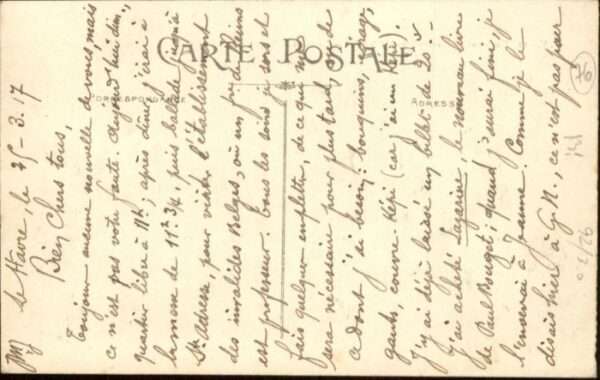 CARTE POSTALE
CORRESPONDANCE
ADRESSE
76
le Havre, le 25-3.17
Bien Chers tous,
Toujours aucune nouvelle de vous, mais
ce n'est pas votre faute. Aujourd'hui dim.,
quartier libre à 11h; après dîner j'irai à
la messe de 11h 3/4, puis balade jusqu'à
Ste Adresse, pour visiter l'établissement
des invalides Belges, où un
est professeur. Tous les sens et
fais quelques emplettes, de ce qui me
sera nécessaire pour plus tard, ou de
ce dont j'ai besoin: bouquins,
gants, couvre-Képi (car j'ai un Képi).
J'y ai déjà laissé un billet de 20.
J'ai acheté Lazarine, le nouveau livre
de Paul Bourget; quand j'aurai fini, je
l'enverrai à Jeanne. Comme je le
disais hier à G.M., ce n'est pas par